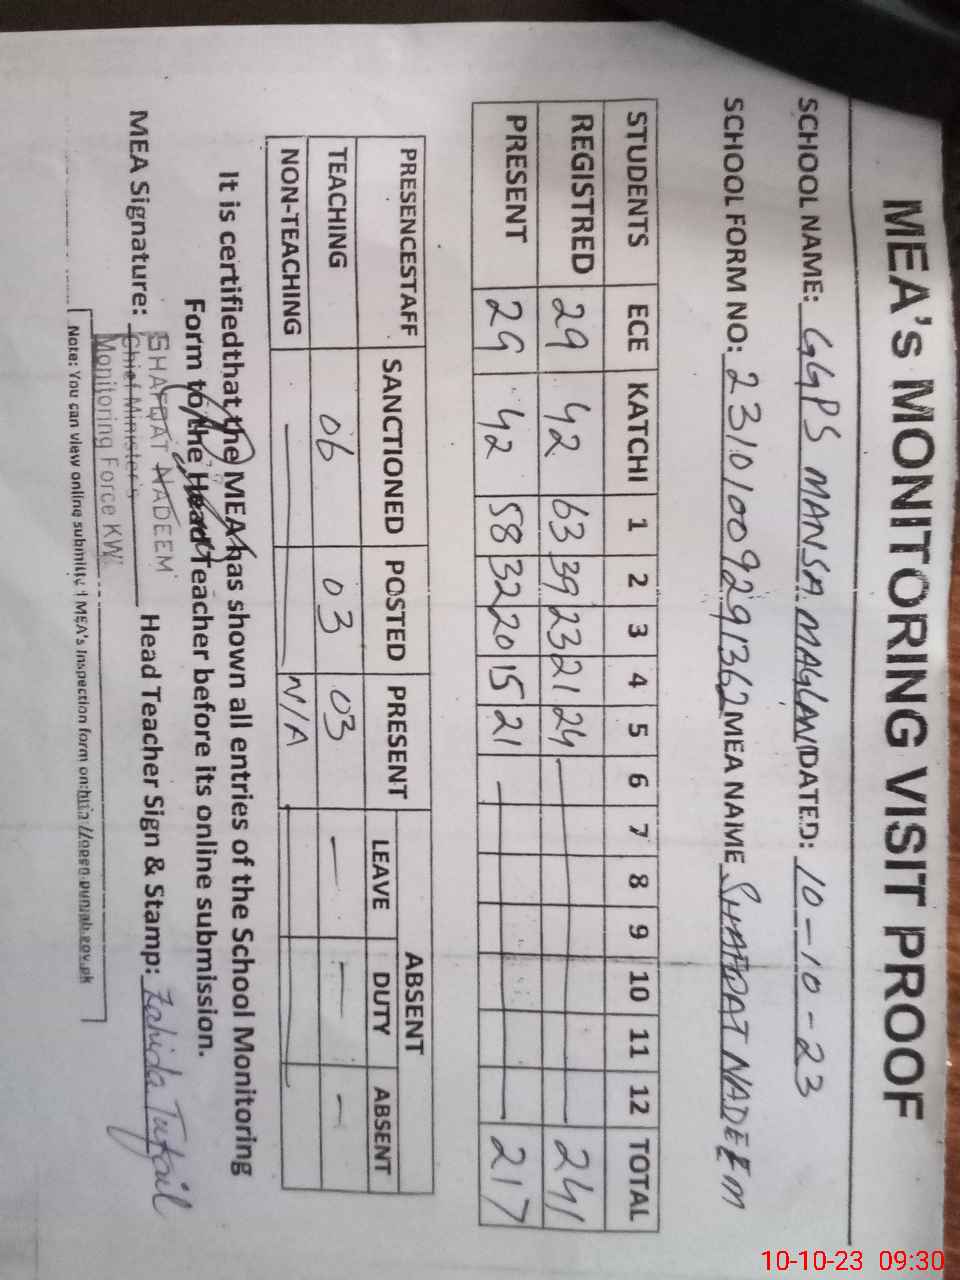 MEA's MONITORING VISIT PROOF
SCHOOL NAME: GGPS MANSA MAGLANI DATED: 10-10-23
SCHOOL FORM NO: 2310100929291362 MEA NAME SHAFQAT NADEEM
STUDENTS ECE KATCHI 1 2 3 4 5 6 7 8 9 10 11 12 TOTAL
REGISTRED 29 42 63 39 23 21 24 — 241
PRESENT 29 42 58 32 20 15 21 — 217
PRESENCESTAFF SANCTIONED POSTED PRESENT ABSENT
LEAVE DUTY ABSENT
TEACHING 06 03 03 — — —
NON-TEACHING — — N/A —
It is certifiedthat the MEA has shown all entries of the School Monitoring
Form to the Head Teacher before its online submission.
MEA Signature: SHAFQAT NADEEM Head Teacher Sign & Stamp: Zahida Tufail
Chief Minister's
Monitoring Force KW.
Note: You can view online submitted MEA's Inspection form on:http://open.punjab.gov.pk
10-10-23 09:30